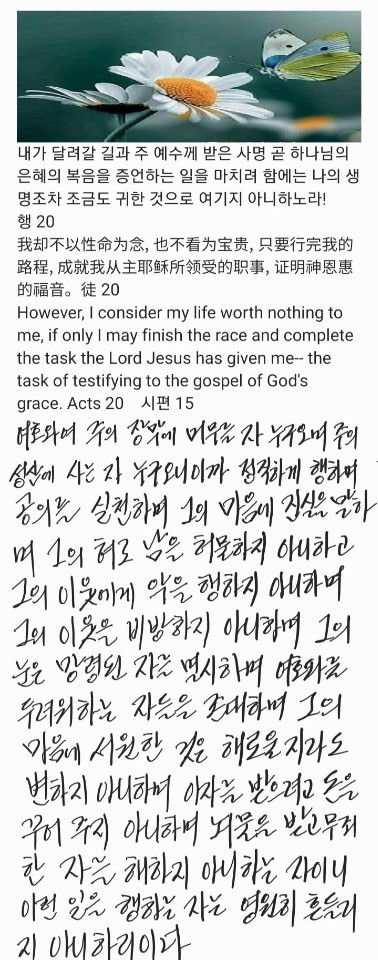 내가 달려갈 길과 주 예수께 받은 사명 곧 하나님의
은혜의 복음을 증언하는 일을 마치려 함에는 나의 생
명조차 조금도 귀한 것으로 여기지 아니하노라!
행 20
我却不以性命为念, 也不看为宝贵, 只要行完我的
路程, 成就我从主耶稣所领受的职事, 证明神恩惠
的福音。徒 20
However, I consider my life worth nothing to
me, if only I may finish the race and complete
the task the Lord Jesus has given me-- the
task of testifying to the gospel of God's
grace. Acts 20 시편 15
여호와여 주의 장막에 머무를 자 누구오며 주의
성산에 사는 자 누구오니이까 정직하게 행하며
공의를 실천하며 그의 마음에 진실을 말하
며 그의 혀로 남을 허물하지 아니하고
그의 이웃에게 악을 행하지 아니하며
그의 이웃을 비방하지 아니하며 그의
눈은 망령된 자를 멸시하며 여호와를
두려워하는 자들을 존대하며 그의
마음에 서원한 것은 해로울지라도
변하지 아니하며 이자를 받으려고 돈을
꾸어 주지 아니하며 뇌물을 받고 무죄
한 자를 해하지 아니하는 자이니
이런 일을 행하는 자는 영원히 흔들리
지 아니하리이다